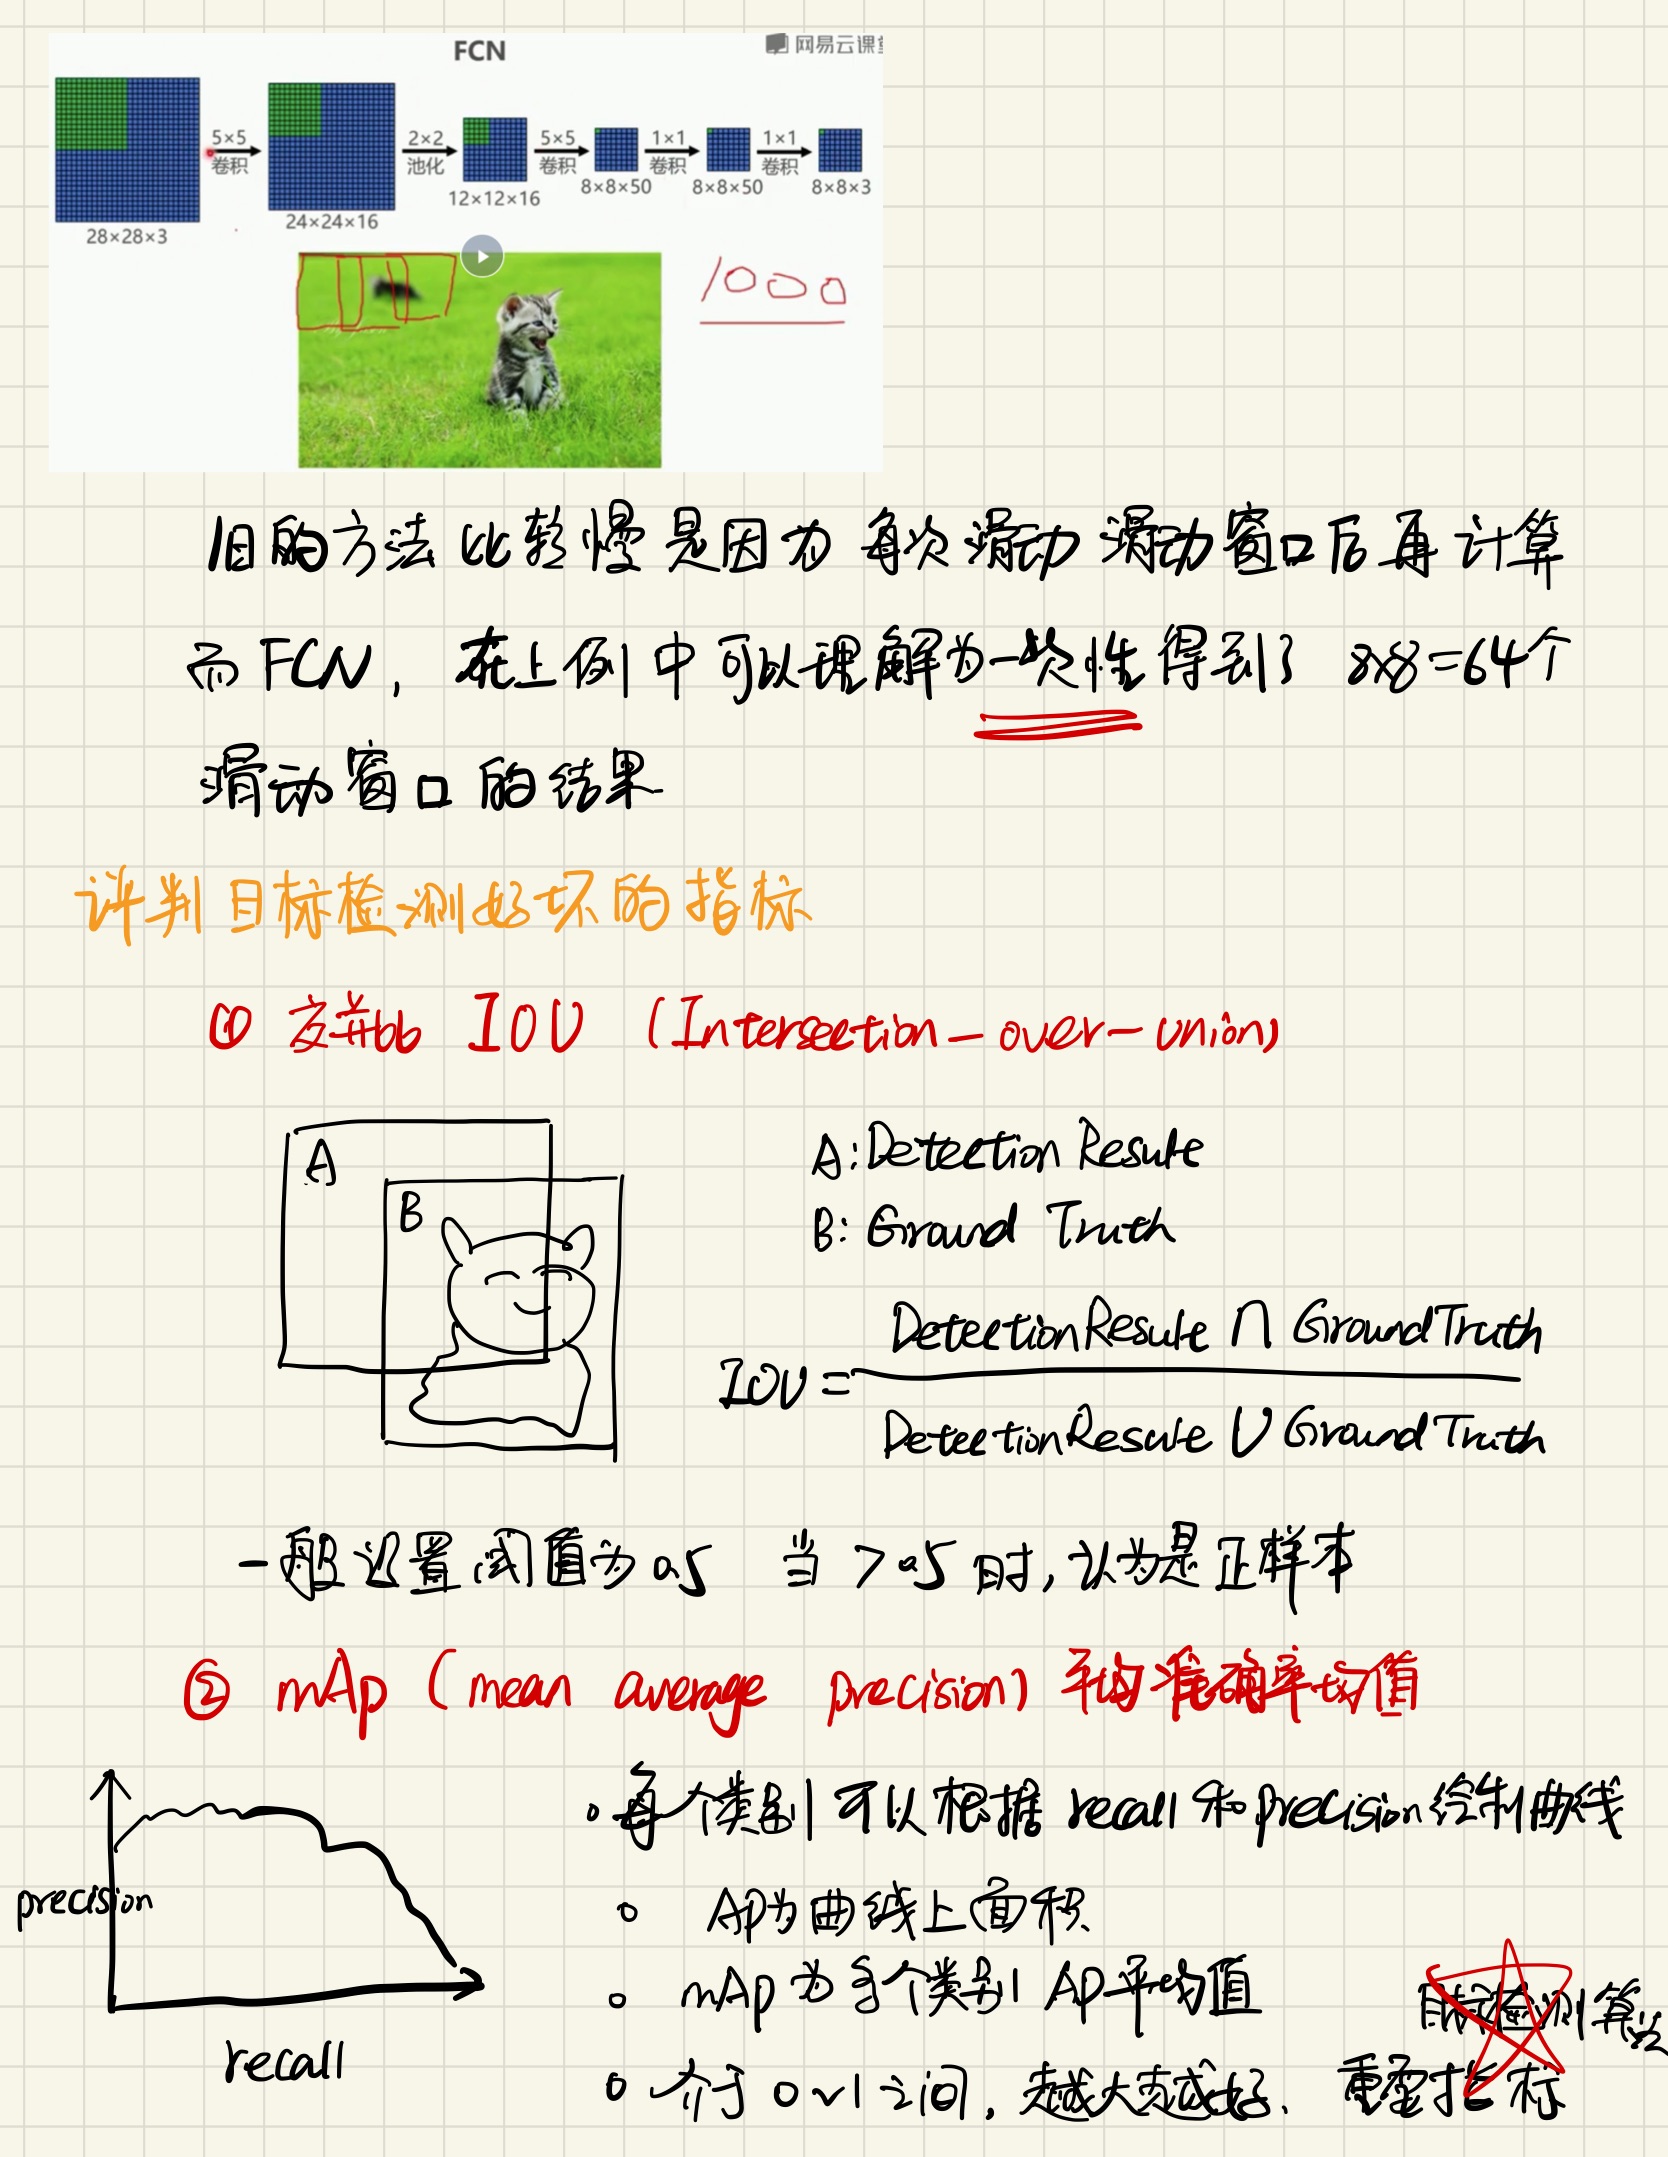 FCN
网易云课堂
5×5 卷积
2×2 池化
5×5 卷积
1×1 卷积
1×1 卷积
28×28×3
24×24×16
12×12×16
8×8×50
8×8×50
8×8×3
1000
旧的方法比较慢是因为每次滑动滑动窗口后再计算
而FCN，在上例中可以理解为一次性得到了 8×8=64个
滑动窗口的结果
评判目标检测好坏的指标
① 交并比 IOU (Intersection-over-union)
A
B
A: Detection Result
B: Ground Truth
IOU = Detection Result ∩ Ground Truth
Detection Result ∪ Ground Truth
一般设置阈值为0.5 当>0.5时，认为是正样本
② mAp (mean average precision) 平均准确率均值
precision
recall
。每个类别可以根据recall和precision绘制曲线
。 AP为曲线上面积
。 mAp为多个类别AP平均值
。介于0~1之间，越大越好、
目标检测算法
重要指标